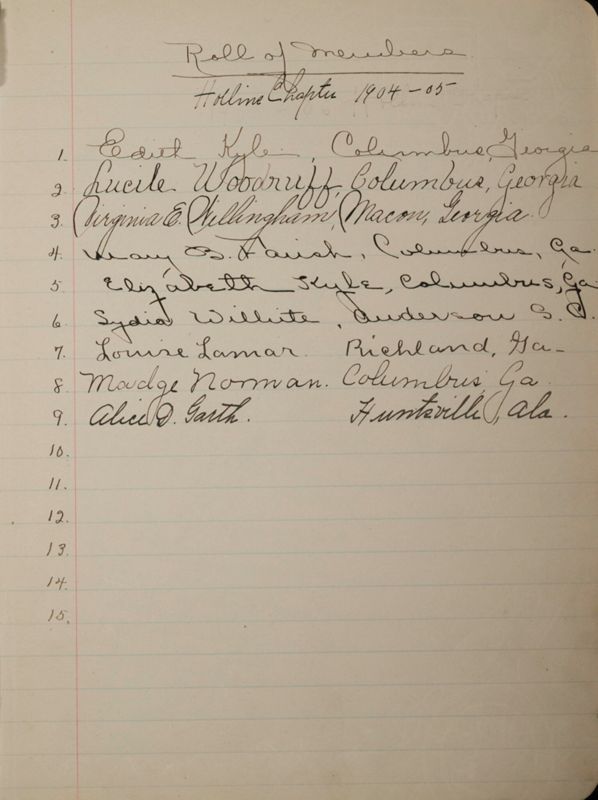 Roll of Members
Hollins Chapter 1904-05
1. Edith Kyle, Columbus, Georgia
2 Lucile Woodruff, Columbus, Georgia
3. Virginia E. Willingham, Macon, Georgia.
4. Mary B. Parish, Columbus, Ga.
5 Elizabeth Kyle, Columbus, Ga
6 Lydia Willite, Anderson S. C.
7. Louise Lamar. Richland, Ga-
8 Madge Norman. Columbus, Ga.
9. Alice D. Garth. Huntsville, Ala.
10.
11.
12.
13.
14.
15.